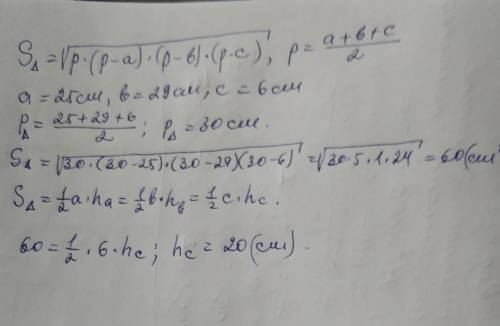 S△ = √p·(p-a)·(p-b)·(p-c), p = (a+b+c)/2
a = 25см, b = 29см, c = 6см
P△ = (25+29+6)/2; P△ = 30см.
S△ = √30·(30-25)·(30-29)(30-6) = √30·5·1·24 = 60(см²
S△ = ½a·ha = ½b·hb = ½c·hc.
60 = ½·6·hc; hc = 20(см).